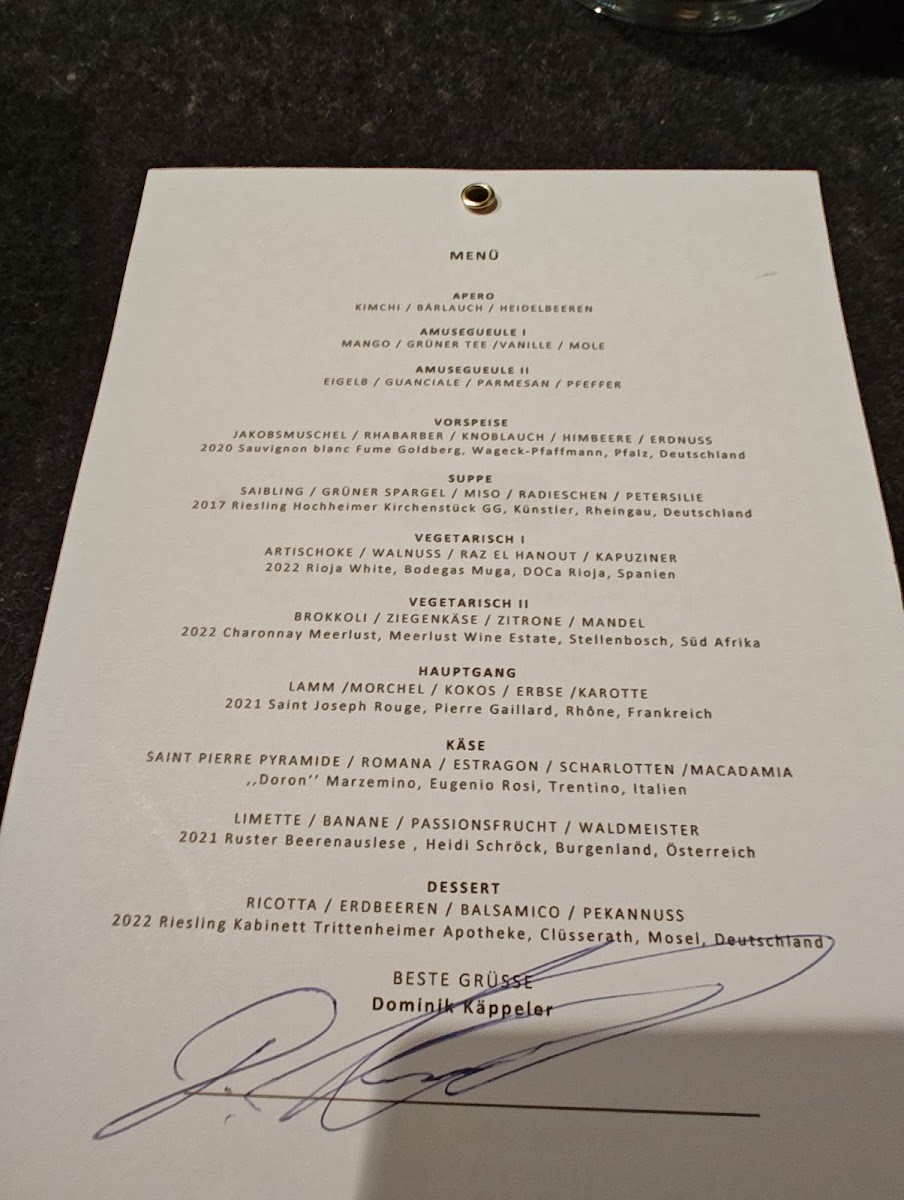 MENÜ
APERO
KIMCHI / BÄRLAUCH / HEIDELBEEREN
AMUSEGUEULE I
MANGO / GRÜNER TEE /VANILLE / MOLE
AMUSEGUEULE II
EIGELB / GUANCIALE / PARMESAN / PFEFFER
VORSPEISE
JAKOBSMUSCHEL / RHABARBER / KNOBLAUCH / HIMBEERE / ERDNUSS
2020 Sauvignon blanc Fume Goldberg, Wageck-Pfaffmann, Pfalz, Deutschland
SUPPE
SAIBLING / GRÜNER SPARGEL / MISO / RADIESCHEN / PETERSILIE
2017 Riesling Hochheimer Kirchenstück GG, Künstler, Rheingau, Deutschland
VEGETARISCH I
ARTISCHOKE / WALNUSS / RAZ EL HANOUT / KAPUZINER
2022 Rioja White, Bodegas Muga, DOCa Rioja, Spanien
VEGETARISCH II
BROKKOLI / ZIEGENKÄSE / ZITRONE / MANDEL
2022 Charonnay Meerlust, Meerlust Wine Estate, Stellenbosch, Süd Afrika
HAUPTGANG
LAMM /MORCHEL / KOKOS / ERBSE /KAROTTE
2021 Saint Joseph Rouge, Pierre Gaillard, Rhône, Frankreich
KÄSE
SAINT PIERRE PYRAMIDE / ROMANA / ESTRAGON / SCHARLOTTEN /MACADAMIA
,,Doron'' Marzemino, Eugenio Rosi, Trentino, Italien
LIMETTE / BANANE / PASSIONSFRUCHT / WALDMEISTER
2021 Ruster Beerenauslese , Heidi Schröck, Burgenland, Österreich
DESSERT
RICOTTA / ERDBEEREN / BALSAMICO / PEKANNUSS
2022 Riesling Kabinett Trittenheimer Apotheke, Clüsserath, Mosel, Deutschland
BESTE GRÜSSE
Dominik Käppeler